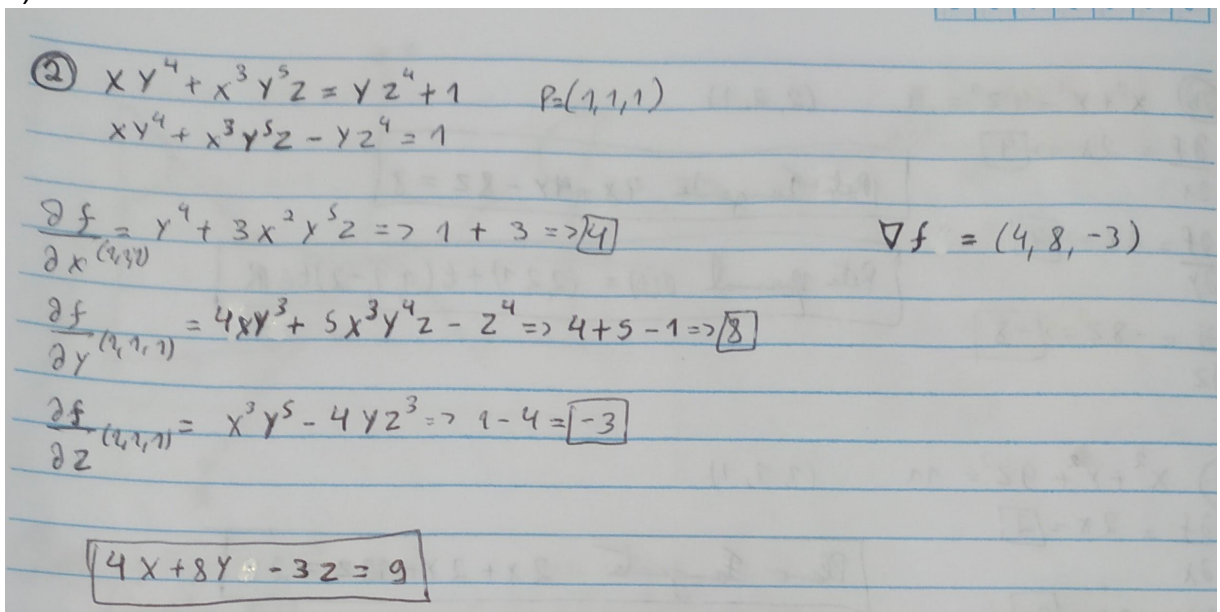 ② xy⁴ + x³y⁵z = yz⁴ + 1 P=(1,1,1)
xy⁴ + x³y⁵z - yz⁴ = 1
∂f/∂x (1,1,1) = y⁴ + 3x²y⁵z => 1 + 3 => 4 ∇f = (4, 8, -3)
∂f/∂y (1,1,1) = 4xy³ + 5x³y⁴z - z⁴ => 4+5-1 => 8
∂f/∂z (1,1,1) = x³y⁵ - 4yz³ => 1-4 = -3
4x+8y -3z = 9